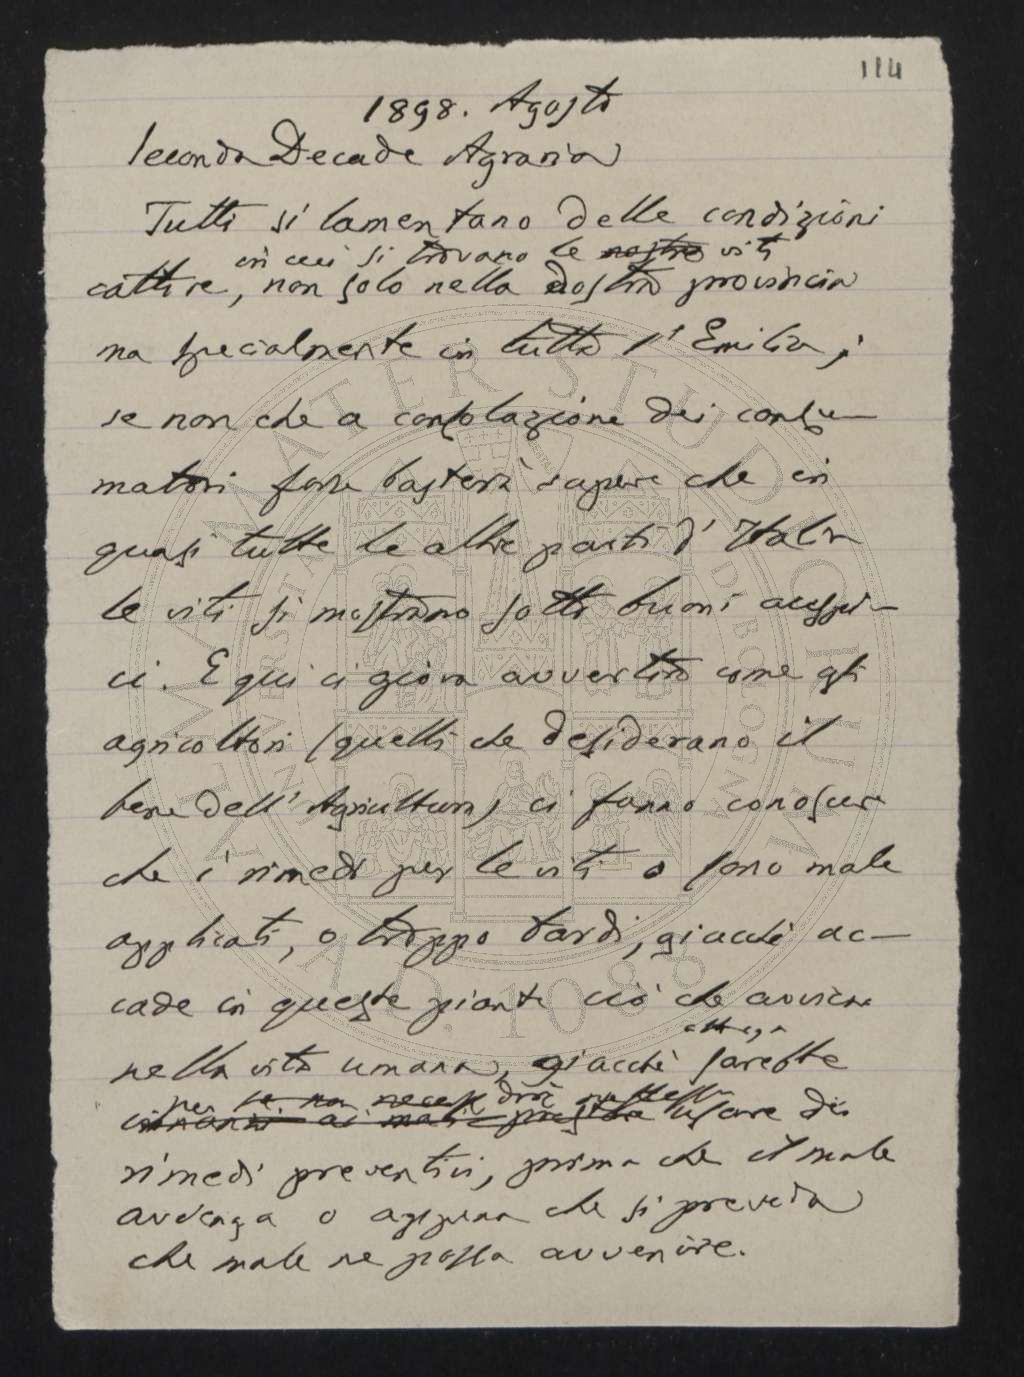 114
1898. Agosto
Seconda Decade Agraria
Tutti si lamentano delle condizioni
in cui si trovano le nostre viti
cattive, non solo nella nostra provincia
ma specialmente in tutta l'Emilia;
se non che a consolazione dei consu-
matori forse basterà sapere che in
quasi tutte le altre parti d'Italia
le viti si mostrano sotto buoni auspi-
ci. E qui ci giova avvertire come gli
agricoltori (quelli che desiderano il
bene dell'Agricoltura) ci fanno conoscere
che i rimedi per le viti o sono male
applicati, o troppo tardi, giacchè ac-
cade in queste piante ciò che avviene
nella vita umana, giacchè sarebbe
per se non
innanzi ai mali usare dei
rimedi preventivi, prima che il male
avvenga o appena che si preveda
che male ne possa avvenire.
ALMA MATER STUDIORUM
A.D. 1088